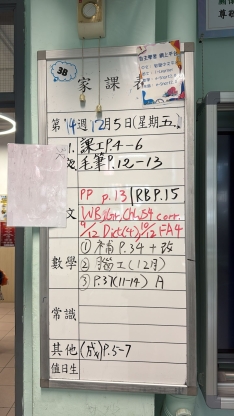 3B
家課表
第14週12月5日(星期五)
1. 課工P.4-6
毛筆P.12-13
文
PP p.13 RB P.15
WB(Gr, CH.5A corr.
9/12 Dict(4) 10/12 EA4
數學
① 補P.34 + 改
② 腦工(12月)
③ P.37(11-14) A
常識
其他
(成)P.5-7
值日生